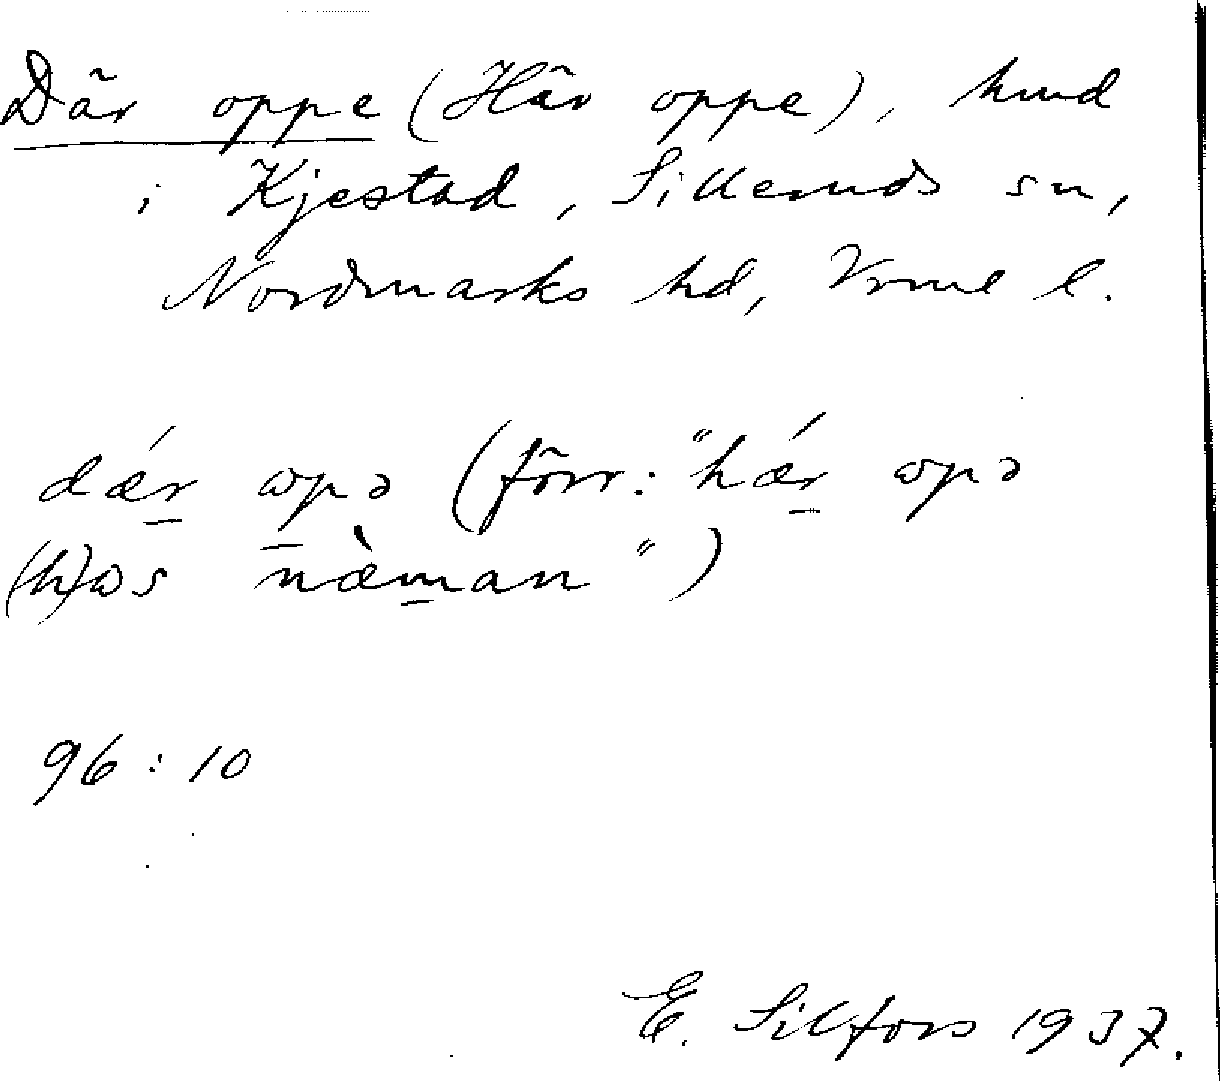 Där oppe (Här oppe), hmd
i Kjestad, Silleruds sn,
Nordmarks hd, Vrml l.
dǽr̲ ɷp̲ə (förr: "hǽr̲ ɷpə
(h)ɷs næ̀m̲an")
96:10
E. Silfors 1937.